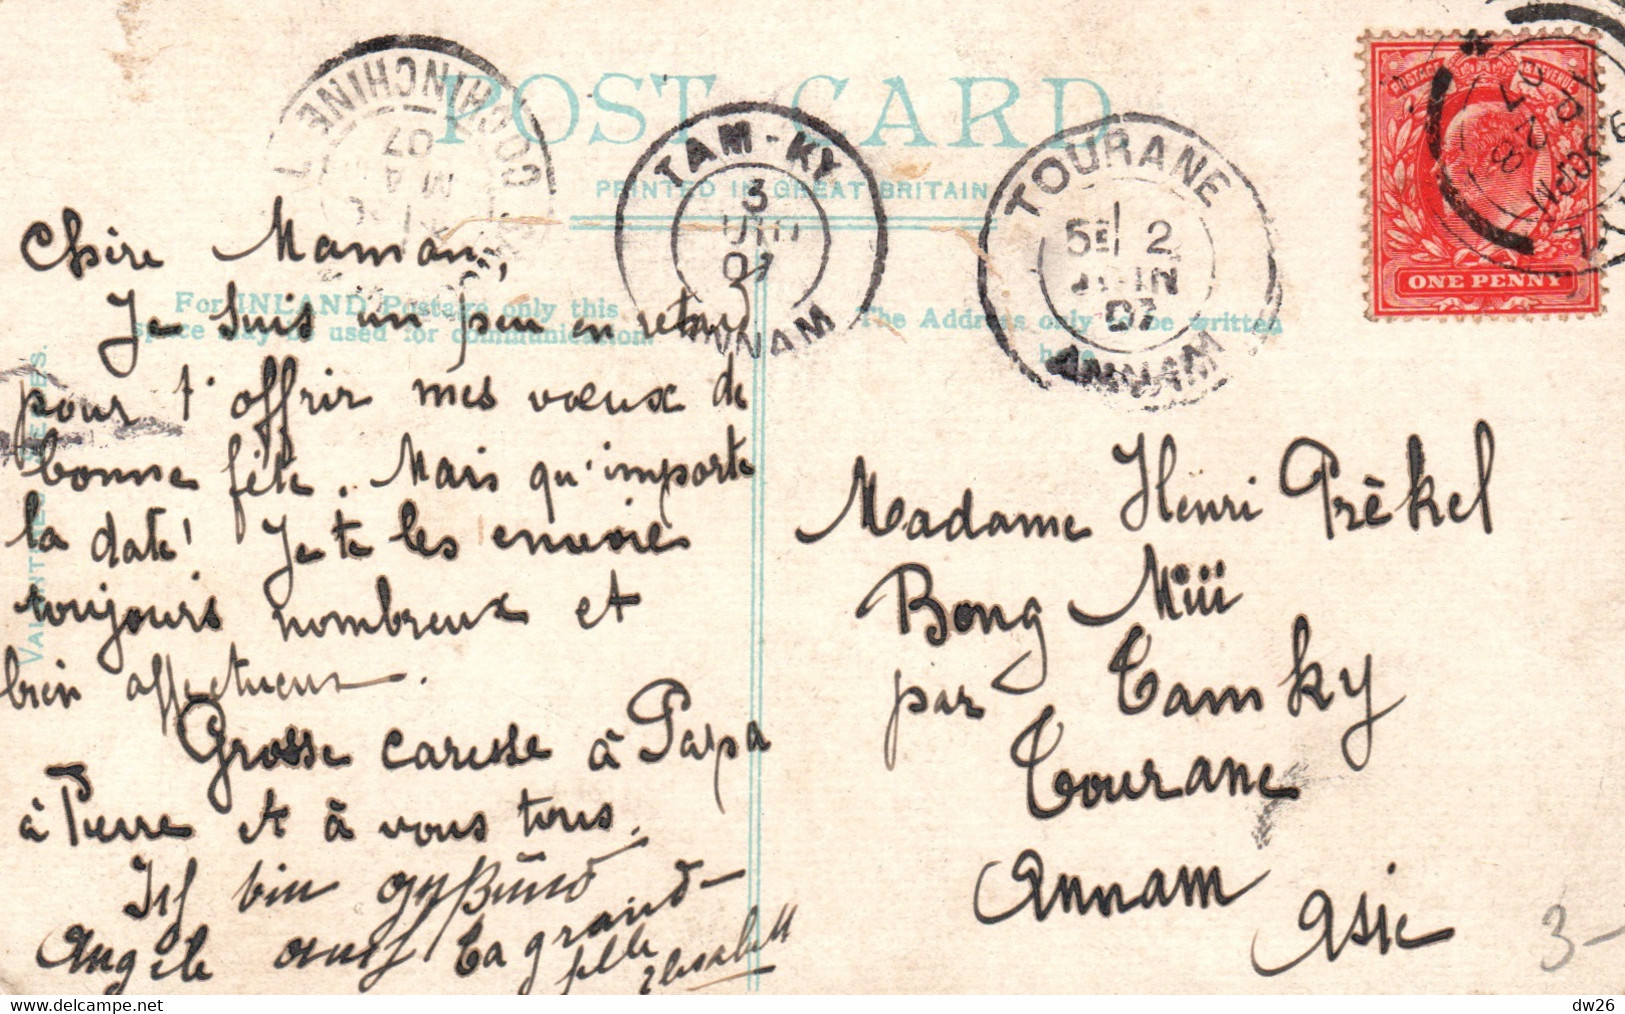 POST CARD
PRINTED IN GREAT BRITAIN
For INLAND Postage only this
space may be used for communication.
The Address only to be written
here
VALENTINES SERIES.
COCHINCHINE
07
TAM-KY
3
JUIN
07
ANNAM
TOURANE
5E 2
JUIN
07
ANNAM
POSTAGE REVENUE
ONE PENNY
AP 28
07
Chère Maman,
Je suis un peu en retard
pour t'offrir mes vœux de
bonne fête. Mais qu'importe
la date! Je te les envoie
toujours nombreux et
bien affectueux.
Grosse caresse à Papa
à Pierre et à vous tous.
Ich bin gesund
Angèle auch Ta grande
fille Elisabeth
Madame Henri Prêkel
Bong Miü
par Tam Ky
Tourane
Annam
Asie
3-
dw26